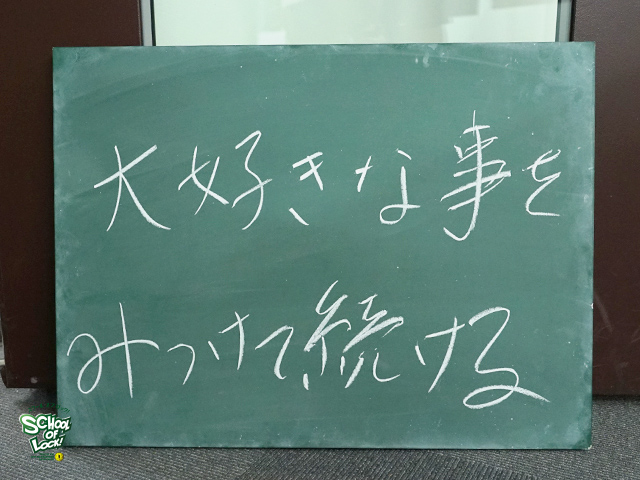 大好きな事を
みつけて続ける
SCHOOL
OF
LOCK!